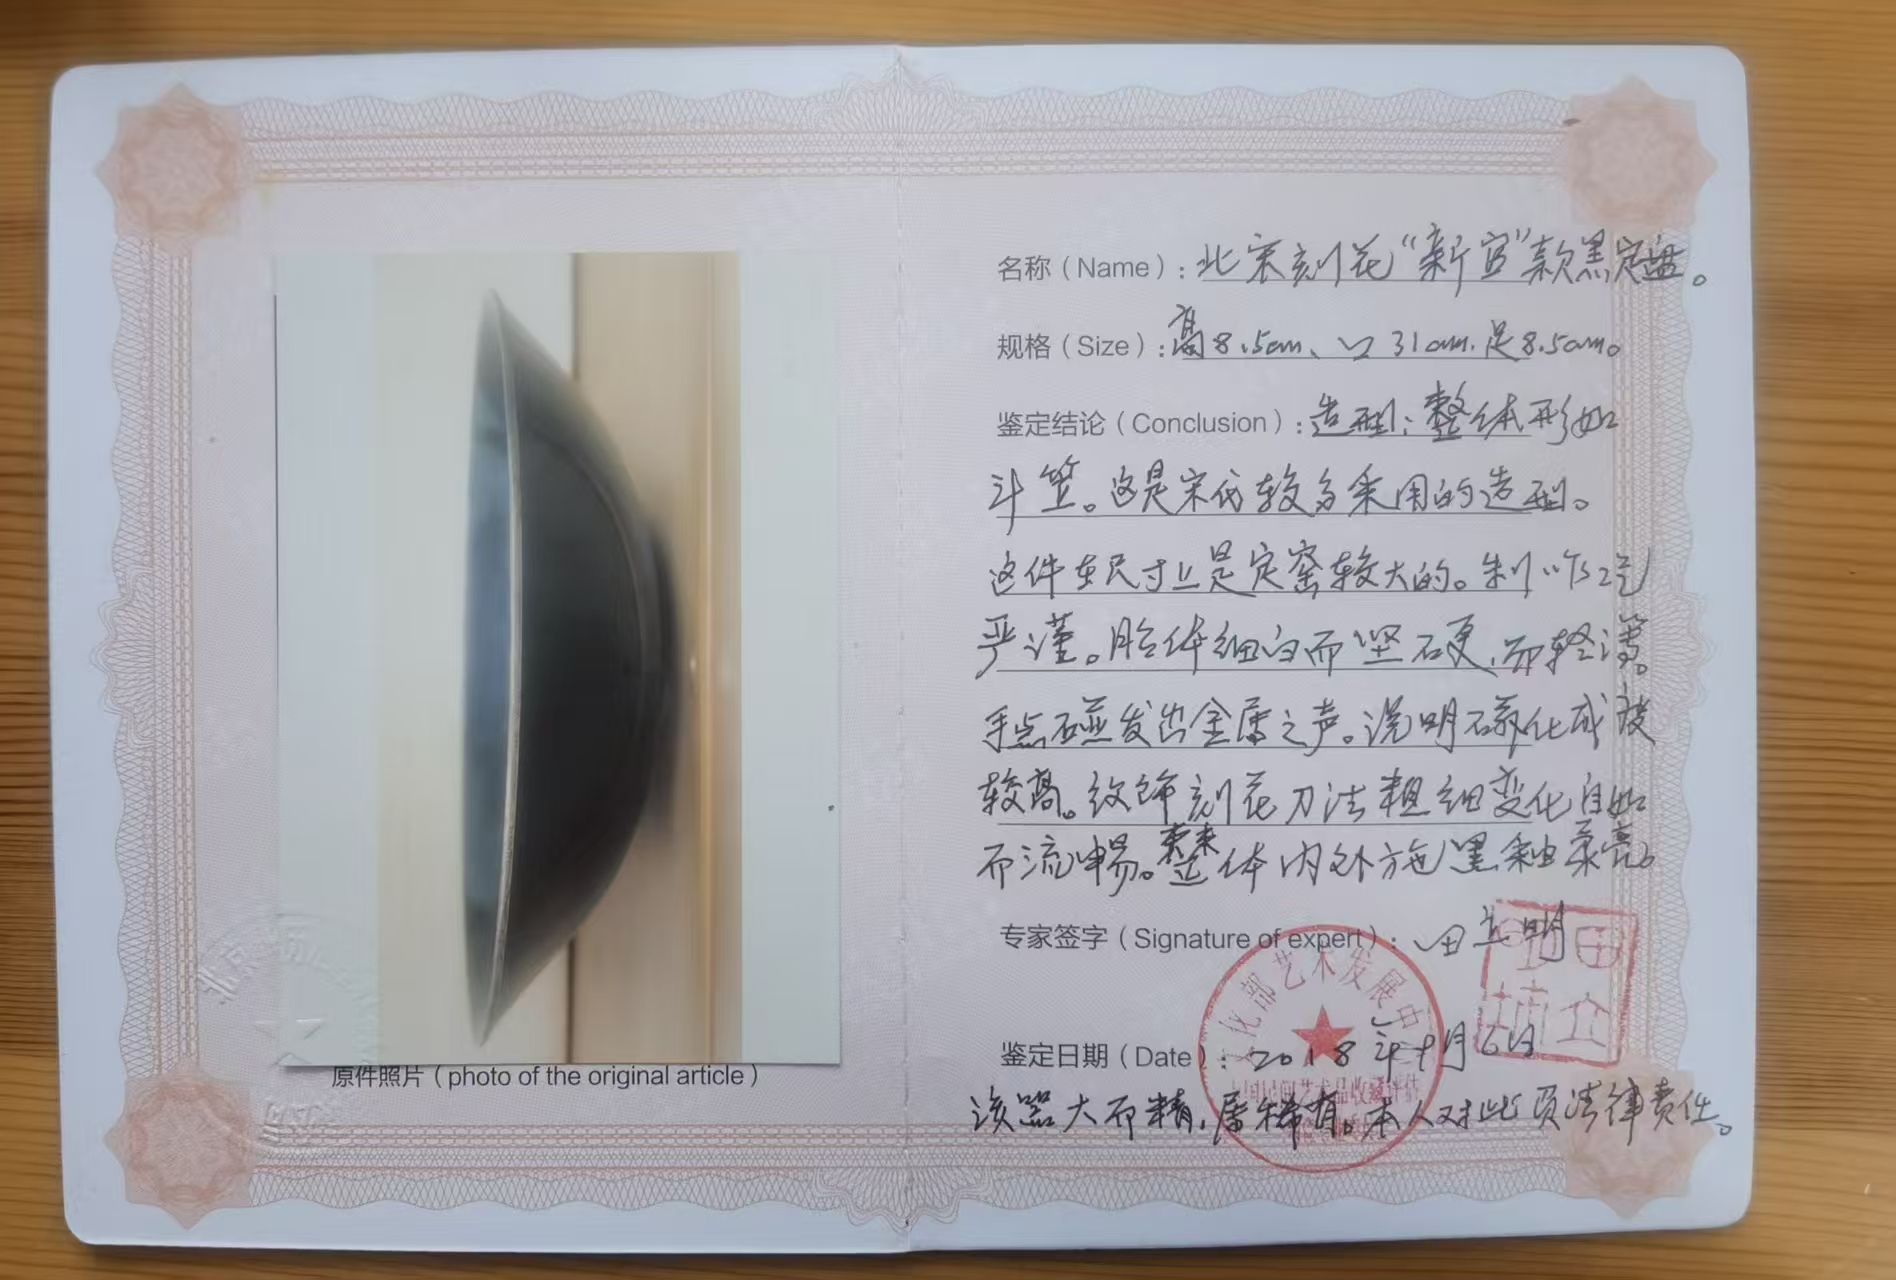 名称（Name）：北宋刻花“新官”款黑定盘。
规格（Size）：高8.5cm、口31cm.足8.5cm。
鉴定结论（Conclusion）：造型：整体形如
斗笠。这是宋代较多采用的造型。
这件在尺寸上是定窑较大的。制作工艺
严谨。胎体细白而坚硬，而轻薄。
手点碰发出金属之声。说明磁化成度
较高。纹饰刻花刀法粗细变化自如
而流畅。整体内外施黑釉柔亮。
专家签字（Signature of expert）：田立明
文化部艺术发展中
鉴定日期（Date）：2018年9月6日
中国民间艺术品收藏评估
该器大而精，属稀有。本人对此负法律责任。
原件照片（photo of the original article）
北京